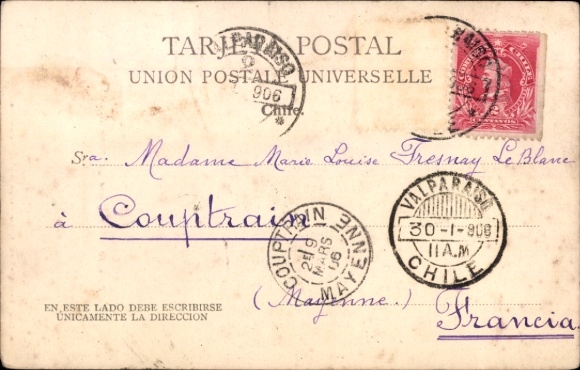 TARJETA POSTAL
UNION POSTALE UNIVERSELLE
Chile.
VALPARAISO
906
CHILE
CENTAVOS
Sra. Madame Marie Louise Fresnay Le Blanc
à Couptrain
VALPARAISO
30-1-906
11 A.M
CHILE
COUPTRAIN
MAYENNE
25
MARS
06
(Mayenne)
Francia
EN ESTE LADO DEBE ESCRIBIRSE
ÚNICAMENTE LA DIRECCION